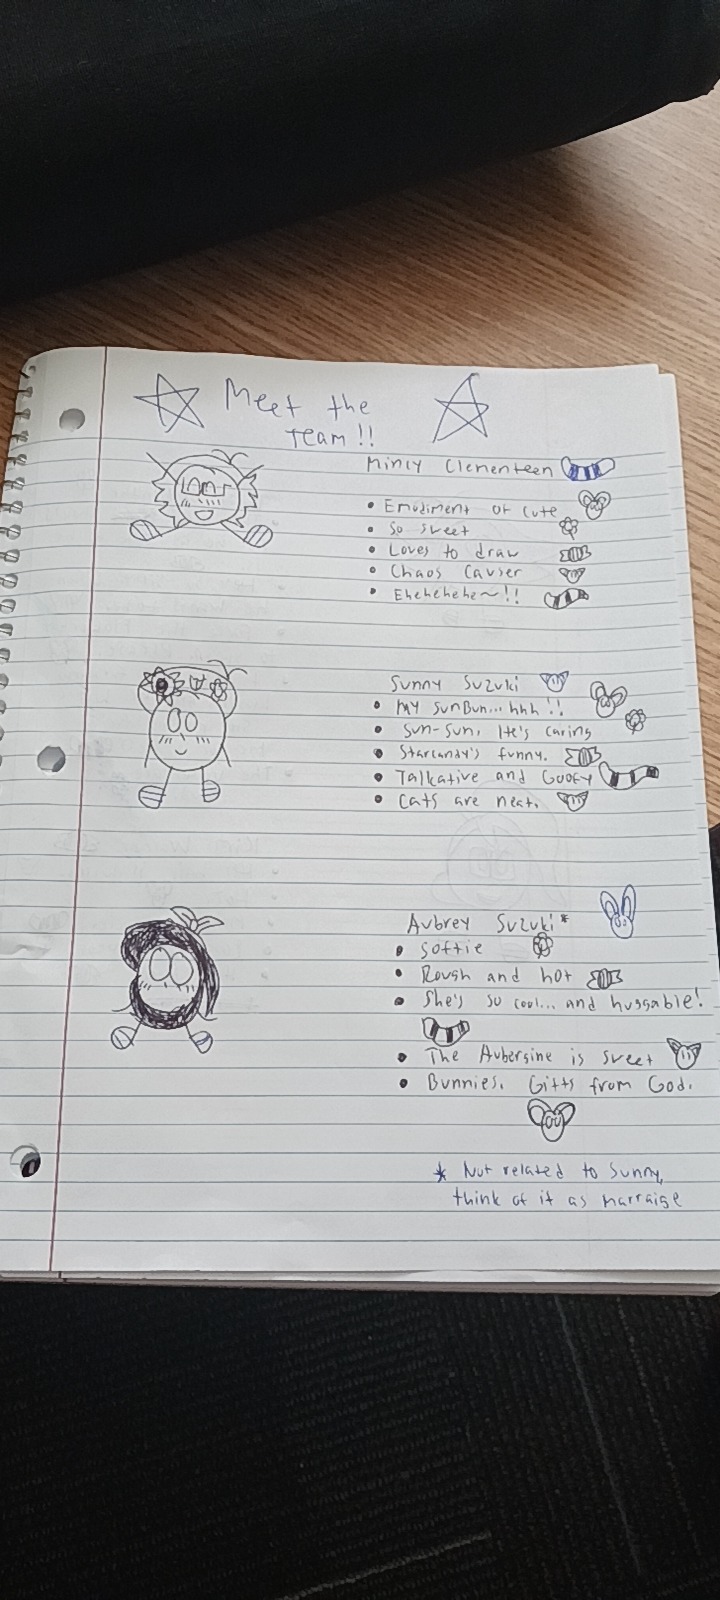 Meet the
Team!!
Mincy Clementeen
• Emodiment of cute
• So sweet
• Loves to draw
• Chaos Causer
• Ehehehehe~!!
Sunny Suzuki
• My SunBun... hhh!!
• Sun-Sun. He's caring
• Starcandy's funny.
• Talkative and Goofy
• Cats are neat.
Aubrey Suzuki*
• Softie
• Rough and hot
• She's so cool... and huggable!
• The Aubergine is sweet
• Bunnies. Gifts from God.
* Not related to Sunny,
think of it as marraige